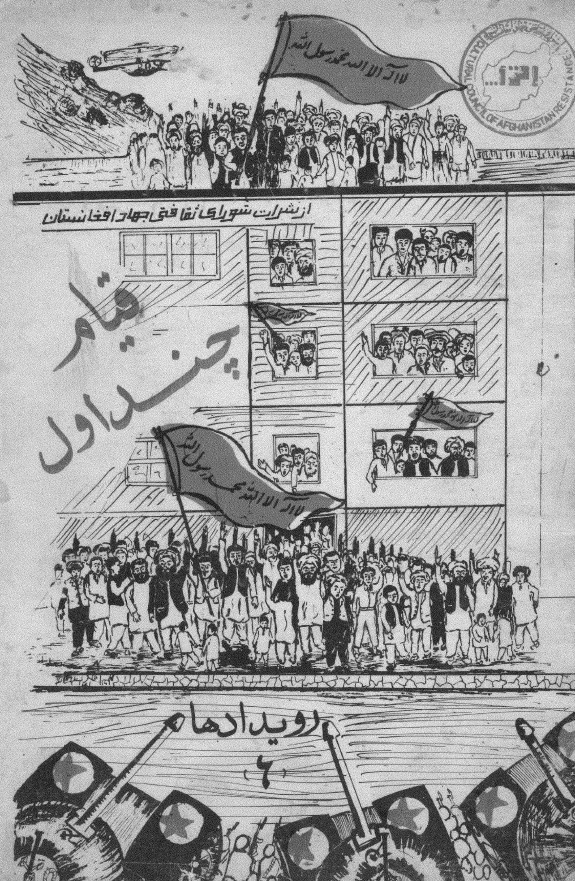 لا اله الا الله محمد رسول الله
CULTURAL COUNCIL OF AFGHANISTAN RESISTANCE
اقرأ...
از نشرات شورای ثقافتی جهاد افغانستان
قیام
چنداول
لا اله الا الله محمد رسول الله
رویدادها
(۶)